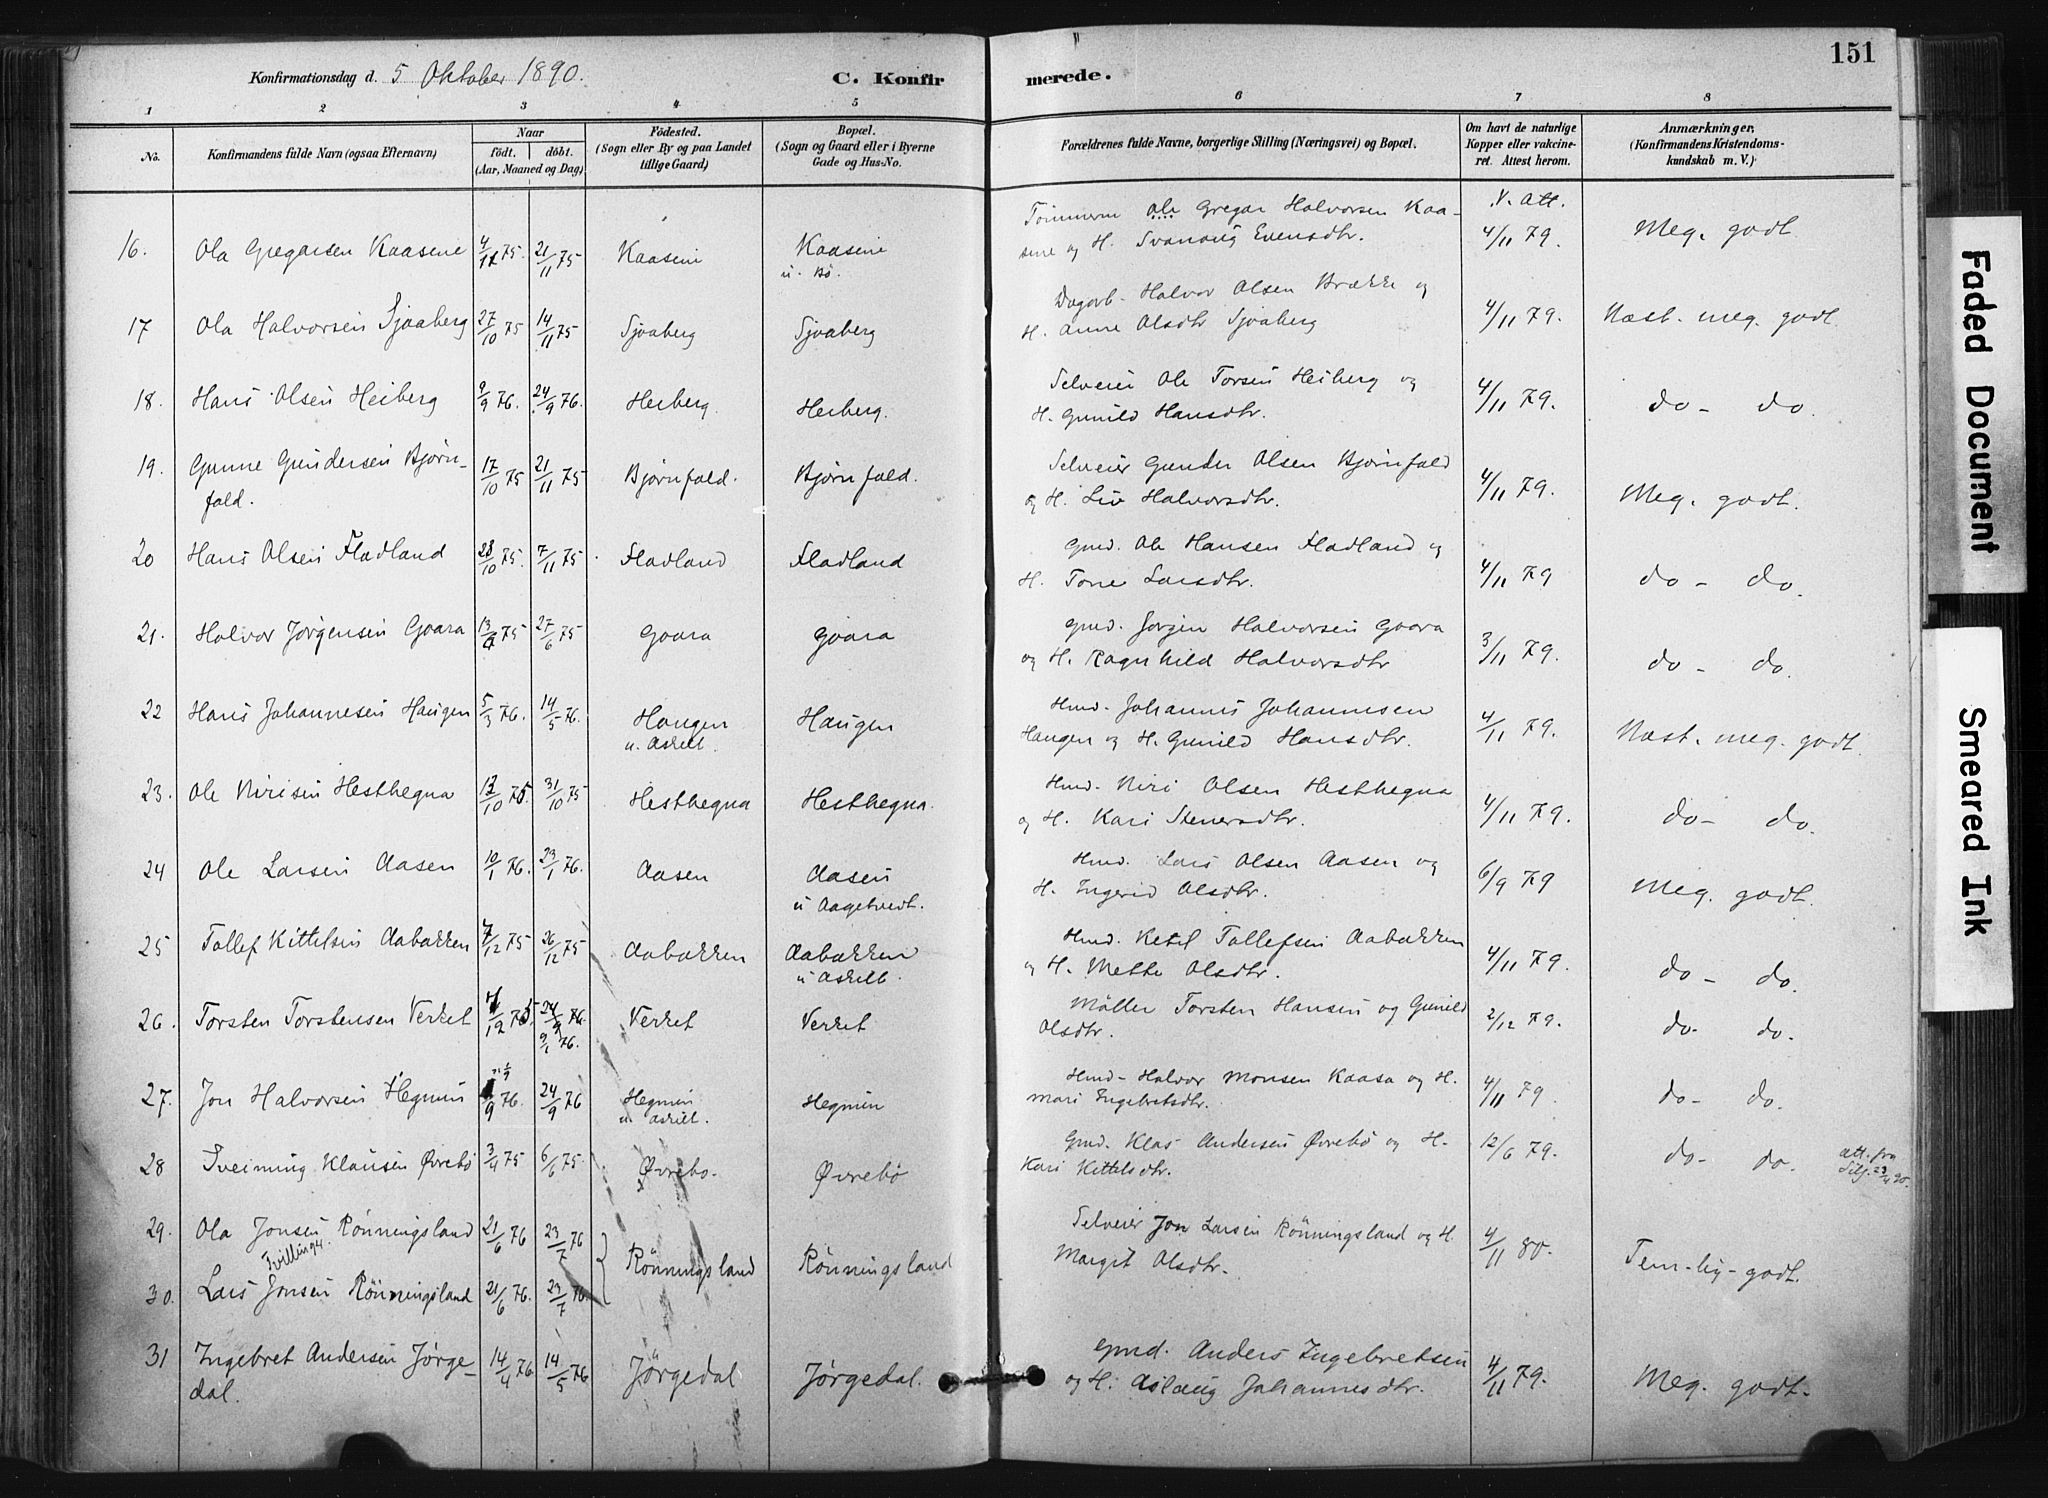 151
Konfirmationsdag d. 5 Oktober 1890.
C. Konfirmerede.
1 2 3 4 5 6 7 8
No.
Konfirmandens fulde Navn (ogsaa Efternavn)
Naar
födt. döbt.
(Aar, Maaned og Dag)
Födested.
(Sogn eller By og paa Landet
tillige Gaard)
Bopæl.
(Sogn og Gaard eller i Byerne
Gade og Hus-No.
Forældrenes fulde Navne, borgerlige Stilling (Næringsvei) og Bopæl.
Om havt de naturlige
Kopper eller vakcine-
ret. Attest herom.
Anmærkninger,
(Konfirmandens Kristendoms-
kundskab m. V.)
16. Ola Gregarsen Kaasene 4/11 75. 21/11 75 Kaasene Kaasene
u. Bø.
Tömmerm Ole Gregar Halvorsen Kaa-
sene og H. Svanaug Evensdtr.
V. Att.
4/11 79. Meg. godt
17 Ola Halvorsen Sjøaberg 27/10 75 14/11 75 Sjøaberg Sjøaberg
Dagarb. Halvor Olsen Brække og
H. Anne Olsdtr Sjøaberg
4/11 79. Næst. meg. godt
18. Hans Olsen Heiberg 9/9 76. 24/9 76. Heiberg. Heiberg.
Selveier Ole Torsen Heiberg og
H. Gunild Hansdtr.
4/11 79. do - do.
19. Gunne Gundersen Bjørn-
fald.
17/10 75 21/11 75 Bjørnfald. Bjørnfald.
Selveier Gunder Olsen Bjørnfald
og H. Liv Halvorsdtr.
4/11 79. Meg. godt.
20 Hans Olsen Fladland 28/10 75. 7/11 75 Fladland Fladland
Gmd. Ole Hansen Fladland og
H. Tone Larsdtr.
4/11 79 do - do.
21. Halvor Jørgensen Goara 75 27/6 75 Goara Goara
Gmd. Jørgen Halvorsen Goara
og H. Ragnhild Halvorsdtr
3/11 79. do - do.
22 Hans Johannesen Haugen 5/3 76. 14/5 76. Haugen
u. Askilt. Haugen
Hmd. Johannes Johannesen
Haugen og H. Gunild Hansdtr.
4/11 79. Næst. meg. godt.
23. Ole Nirisen Hesthegna /10 75. 31/10 75 Hesthegna Hesthegna.
Hmd. Niri Olsen Hesthegna
og H. Kari Stenersdtr.
4/11 79. do - do.
24 Ole Larsen Aasen 10/1 76. 23/1 76. Aasen Aasen
u Aagetvedt.
Hmd. Lars Olsen Aasen og
H. Ingerid Olsdtr.
6/9 79 Meg. godt.
25 Tollef Kittelsen Aabakken 7/12 75 26/12 75 Aabakken Aabakken
u Askilt.
Hmd. Ketil Tollefsen Aabakken
og H. Mette Olsdtr.
4/11 79. do - do.
26. Torsten Torstensen Verket /12 75 24/9 76.
9/1 76. Verket Verket
Möller Torsten Hansen og Gunild
Olsdtr.
2/12 79. do - do.
27. Jon Halvorsen Hegnin /9 76. 24/9 76 Hegnin
u. Askilt. Hegnin
Hmd. Halvor Monsen Kaasa og H.
Mari Ingebretsdtr.
4/11 79 do - do.
28 Sveinung Klausen Øvrebø 3/4 75 6/6 75. Øvrebo. Øvrebø
Gmd. Klas Andersen Øvrebø og H.
Kari Kittelsdtr.
12/6 79. do - do. Att. fra
Silj. 23/4 90.
29. Ola Jonsen Rönningsland 21/6 76 23/7 76
Tvillinger
Rönningsland Rönningsland
Selveier Jon Larsen Rönningsland og H.
Margit Olsdtr.
4/11 80. Tem-lig-godt.
30. Lars Jonsen Rönningsland 21/6 76. 23/7 76.
31 Ingebret Andersen Jørge-
dal.
14/4 76 14/5 76 Jørgedal Jørgedal.
Gmd. Anders Ingebretsen
og H. Aslaug Johannesdtr.
4/11 79. Meg. godt.
Faded Document
Smeared Ink